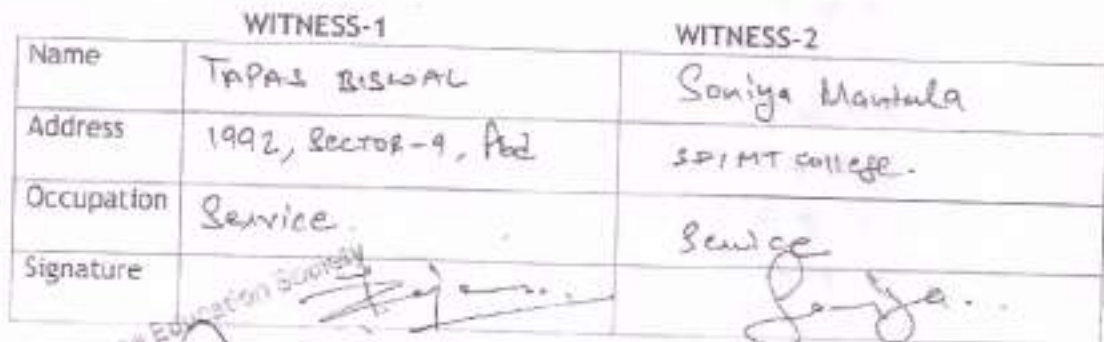 WITNESS-1 WITNESS-2
Name TAPAS BISWAL Soniya
Address 1992, SECTOR-9, SPIMT College.
Occupation Service Service
Signature
Education Society